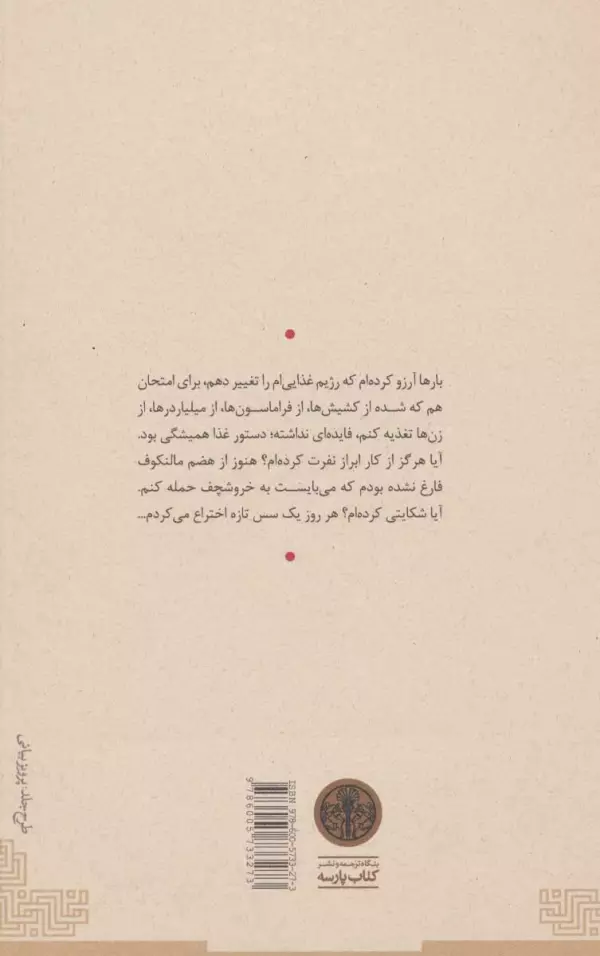 بارها آرزو کرده‌ام که رژیم غذایی‌ام را تغییر دهم، برای امتحان
هم که شده از کشیش‌ها، از فراماسون‌ها، از میلیاردرها، از
زن‌ها تغذیه کنم، فایده‌ای نداشته؛ دستور غذا همیشگی بود.
آیا هرگز از کار ابراز نفرت کرده‌ام؟ هنوز از هضم مالنکوف
فارغ نشده بودم که می‌بایست به خروشچف حمله کنم.
آیا شکایتی کرده‌ام؟ هر روز یک سس تازه اختراع می‌کردم...
طرح جلد: پرویز بیانی
ISBN 978-600-5733-27-3
9786005733273
بنگاه ترجمه و نشر
کتاب پارسه